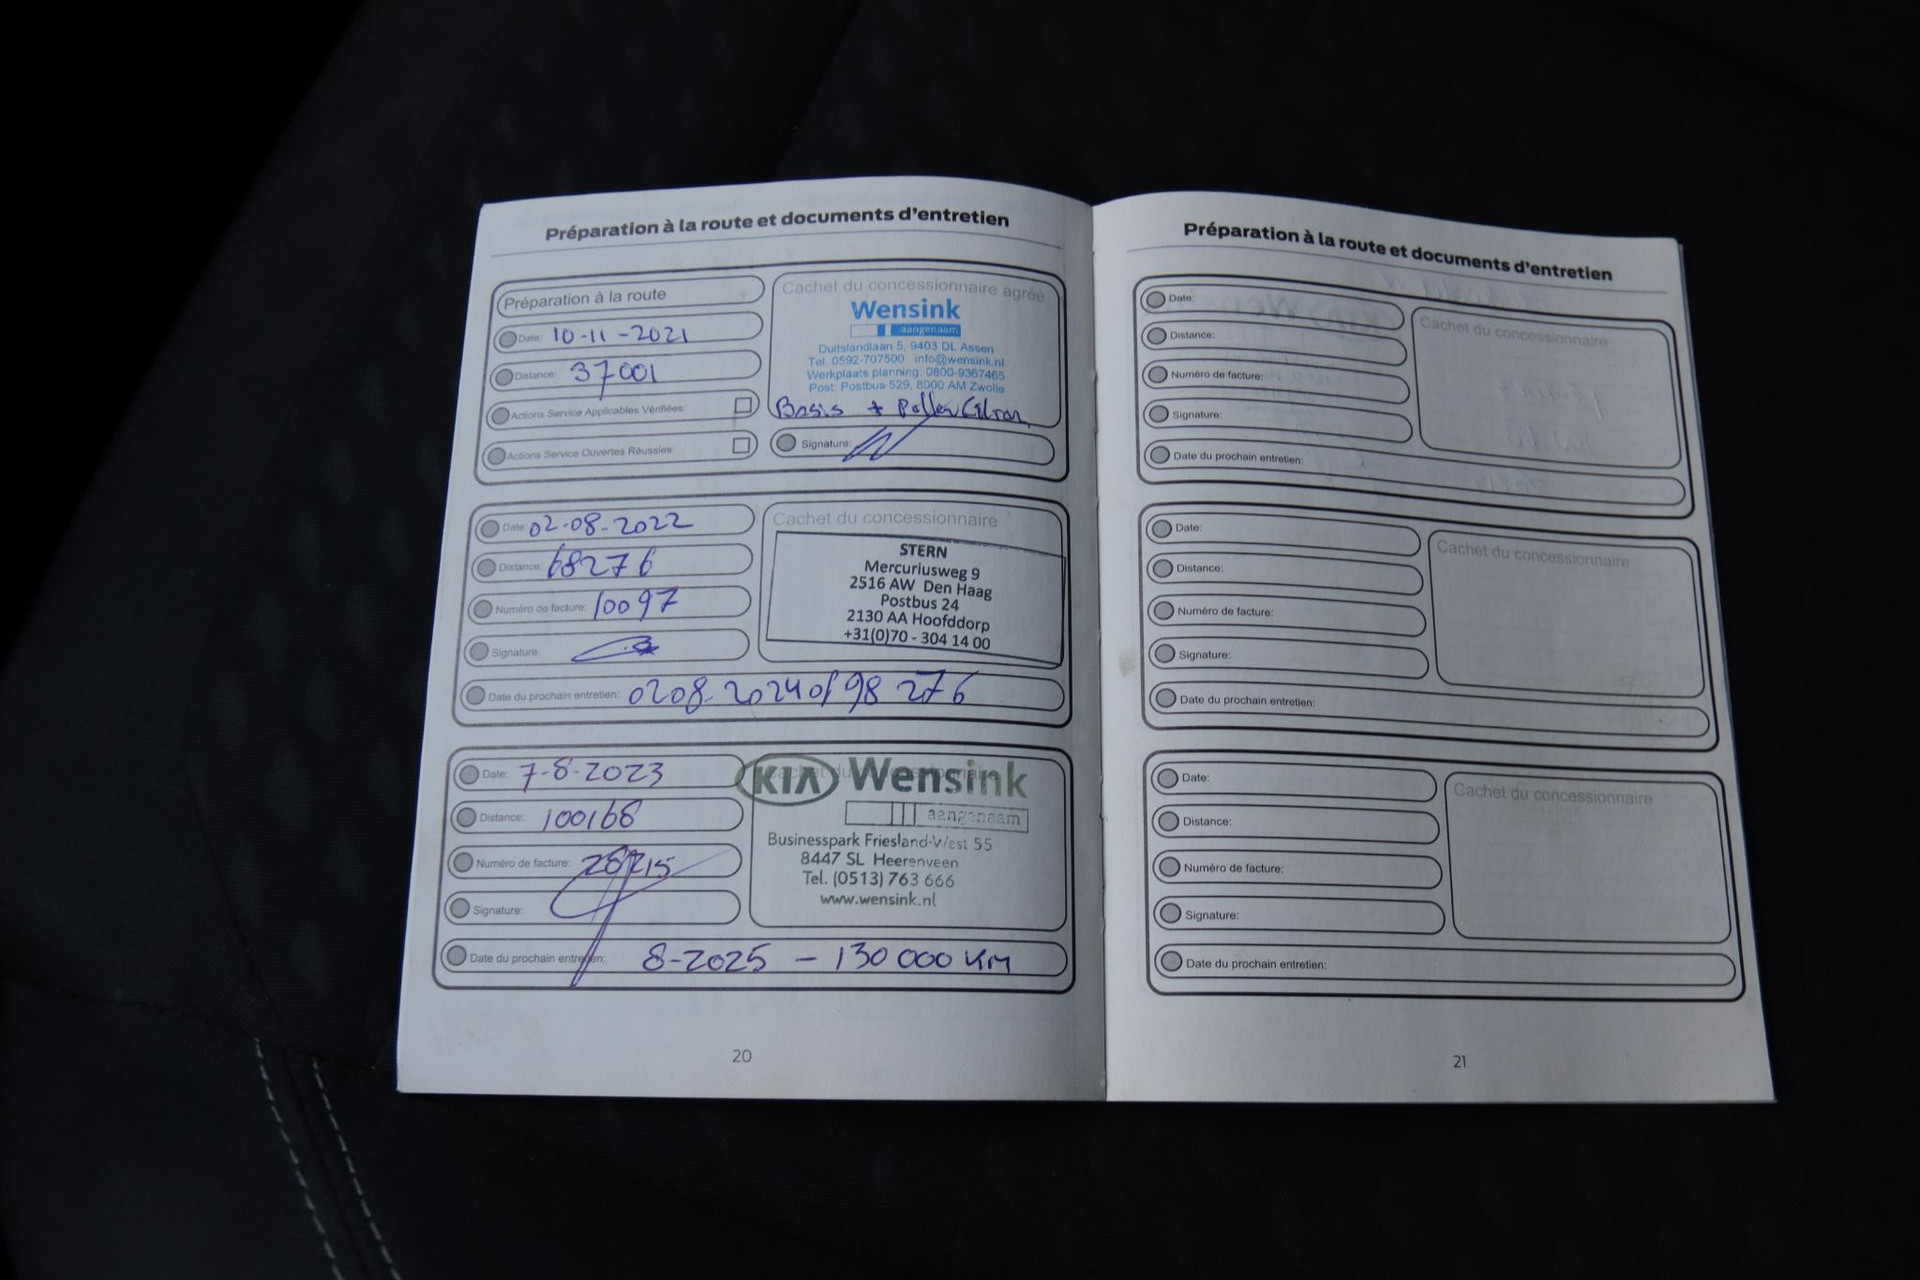 Préparation à la route et documents d'entretien
Préparation à la route
Date: 10-11-2021
Distance: 37001
Actions Service Applicables Vérifiées:
Actions Service Ouvertes Réussies:
Cachet du concessionnaire agréé
Wensink
aangenaam
Duitslandlaan 5, 9403 DL Assen
Tel. 0592-707500 info@wensink.nl
Werkplaats planning: 0800-9367465
Post: Postbus 529, 8000 AM Zwolle
Basis +
Signature:
Date: 02-08-2022
Distance: 68276
Numéro de facture: 10097
Signature:
Cachet du concessionnaire
STERN
Mercuriusweg 9
2516 AW Den Haag
Postbus 24
2130 AA Hoofddorp
+31(0)70 - 304 14 00
Date du prochain entretien: 0208.2024 of 98 276
Date: 7-8-2023
Distance: 100168
Numéro de facture:
Signature:
KIA Wensink
aangenaam
Businesspark Friesland-West 55
8447 SL Heerenveen
Tel. (0513) 763 666
www.wensink.nl
Date du prochain entretien: 8-2025 - 130 000 KM
20
Préparation à la route et documents d'entretien
Date:
Distance:
Numéro de facture:
Signature:
Date du prochain entretien:
Cachet du concessionnaire
Date:
Distance:
Numéro de facture:
Signature:
Date du prochain entretien:
Cachet du concessionnaire
Date:
Distance:
Numéro de facture:
Signature:
Date du prochain entretien:
Cachet du concessionnaire
21